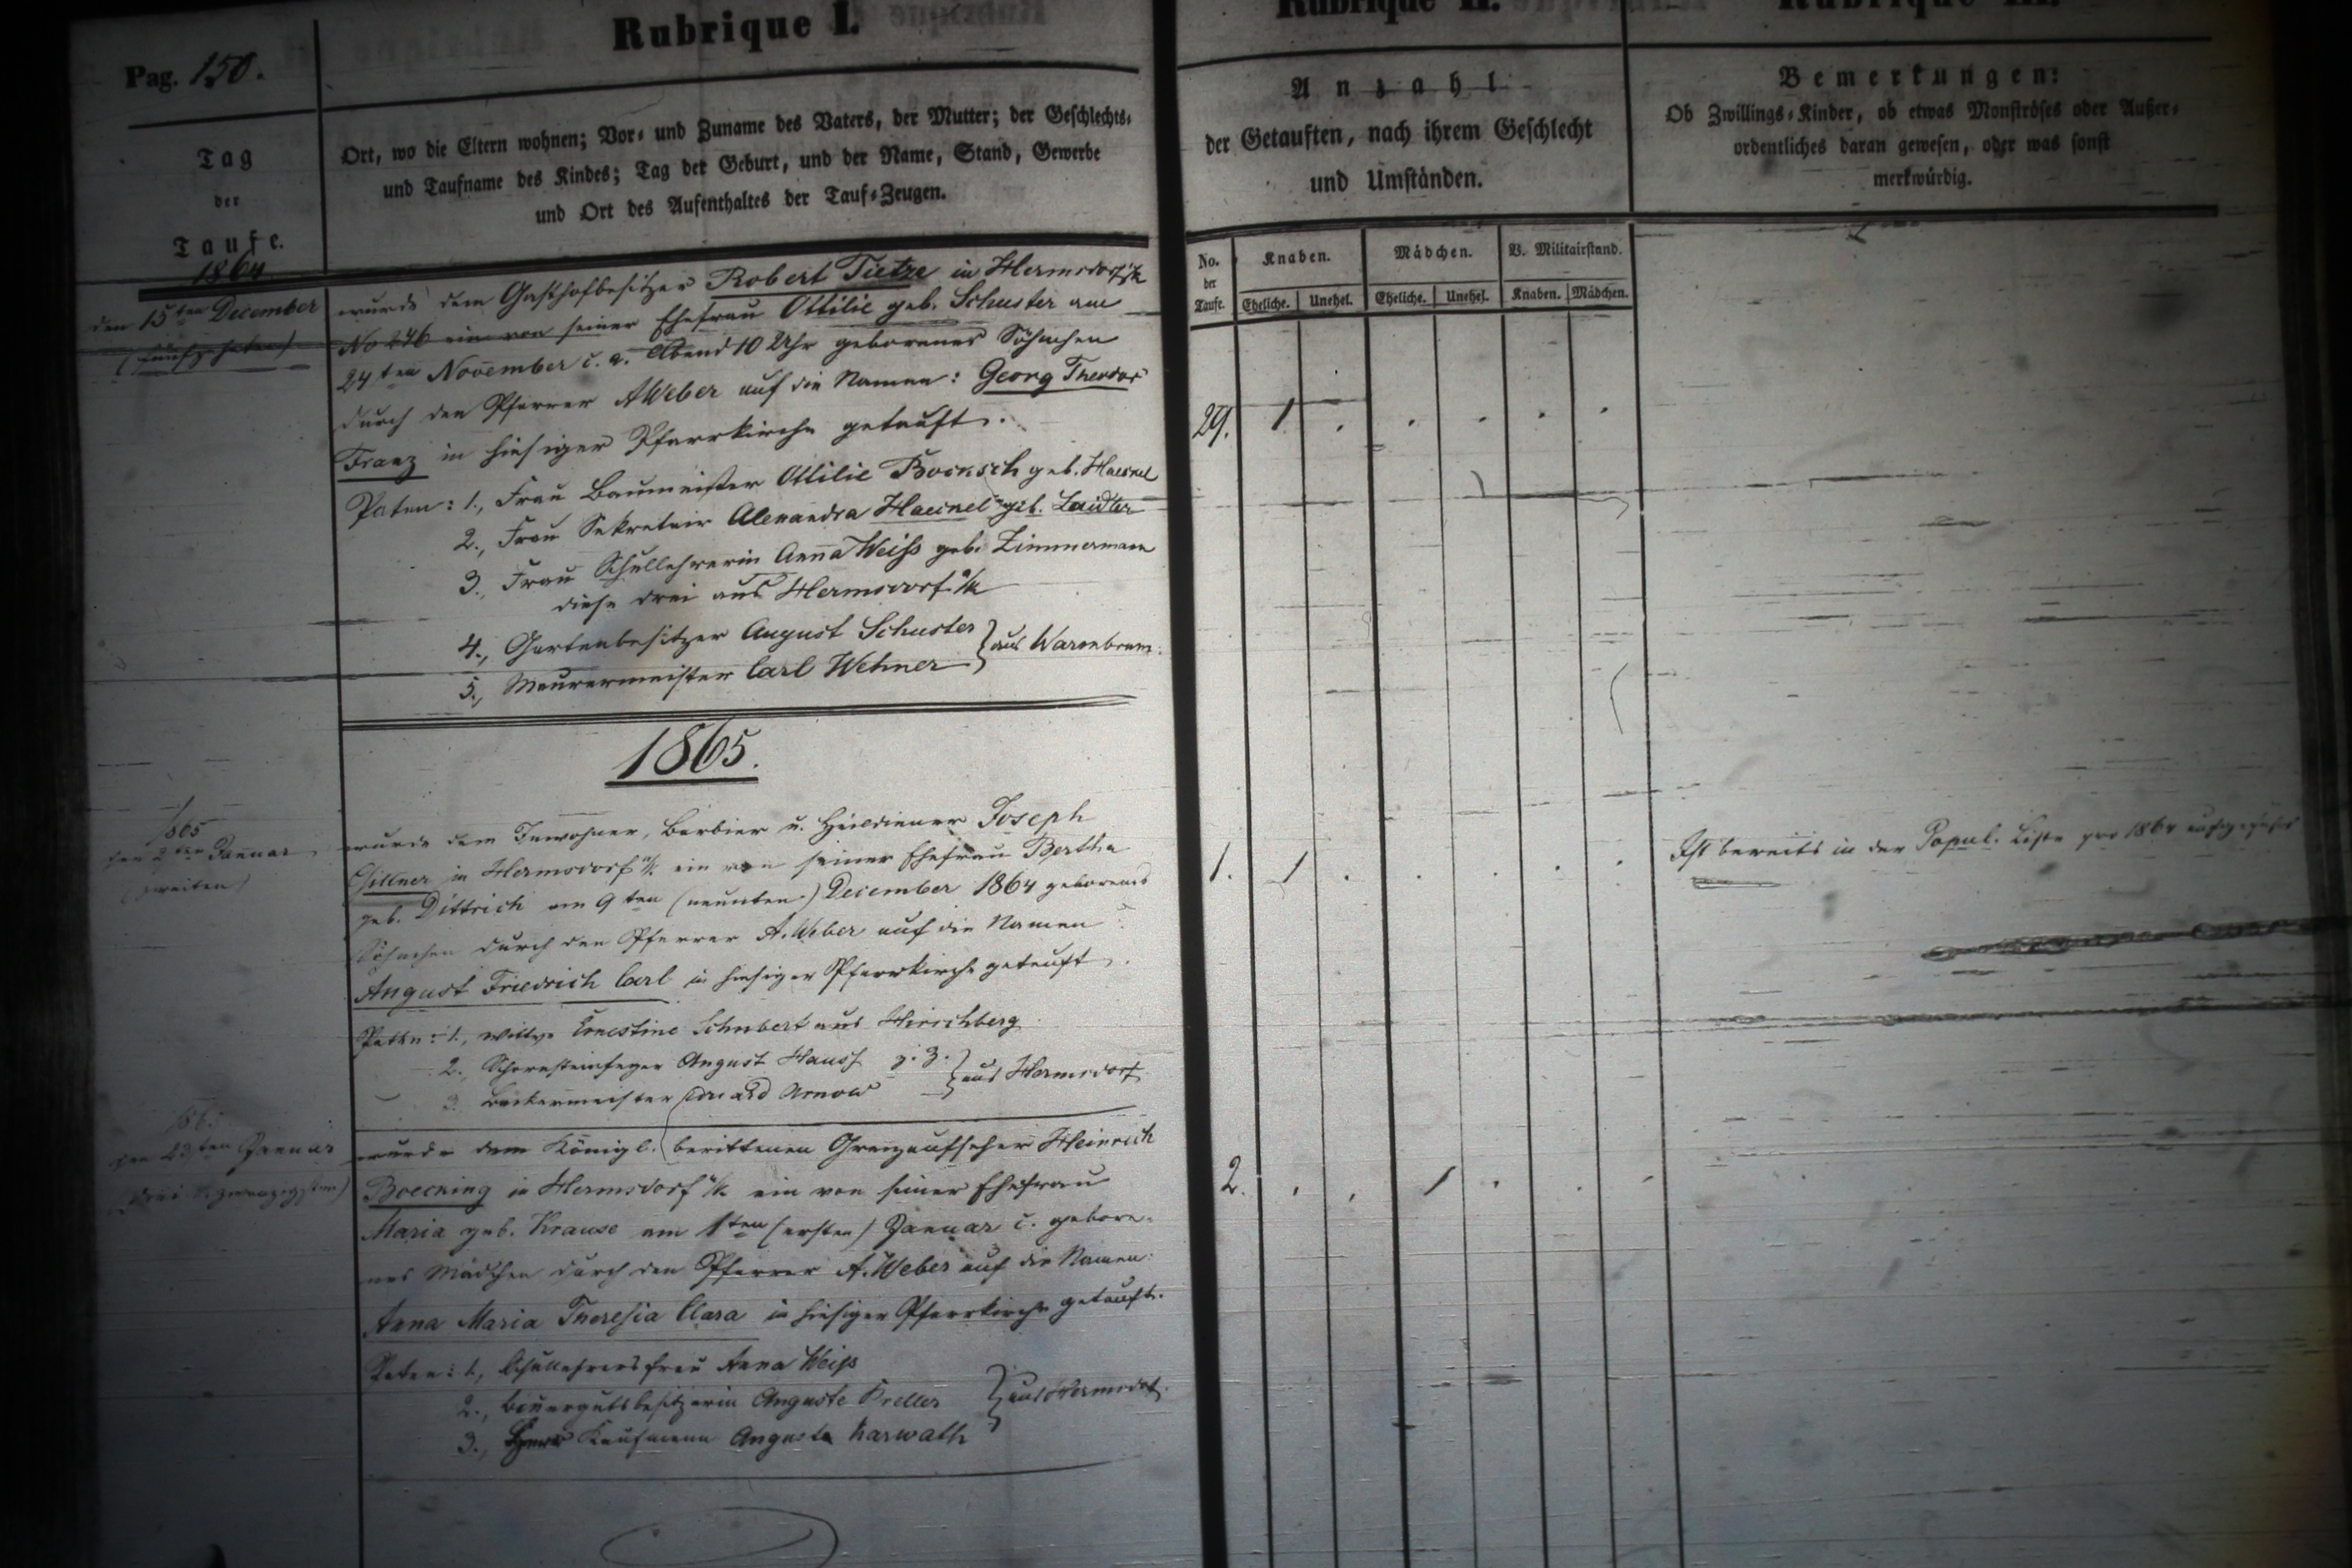 Rubrique I.
Pag. 150.
Tag
der
Taufe.
Ort, wo die Eltern wohnen; Vor- und Zuname des Vaters, der Mutter; der Geschlechts-
und Taufname des Kindes; Tag der Geburt, und der Name, Stand, Gewerbe
und Ort des Aufenthaltes der Tauf-Zeugen.
1864
den 15ten December
(fünfzehnten)
wurde dem Gasthofbesitzer Robert Tietze in Hermsdorf u/k
No 246 ein von seiner Ehefrau Ottilie geb. Schuster am
24ten November c. a. Abend 10 Uhr geborenes Söhnchen
durch den Pfarrer A Weber auf die Namen: Georg Theodor
Franz in hiesiger Pfarrkirche getauft.
Paten: 1., Frau Baumeister Ottilie Boensch geb. Haennel
2., Frau Sekretair Alexandra Haennel geb. Laidler
3., Frau Schullehrerin Anna Weiss geb. Zimmermann
diese drei aus Hermsdorf u/k
4., Gartenbesitzer August Schuster
5., Maurermeister Carl Wehner } aus Warmbrunn.
1865.
1865
den 2ten Januar
(zweiten)
wurde dem Inwohner, Barbier u. Heildiener Joseph
Gillner in Hermsdorf u/k. ein von seiner Ehefrau Bertha
geb. Dittrich am 9ten (neunten) December 1864 geborenes
Söhnchen durch den Pfarrer A. Weber auf die Namen:
August Friedrich Carl in hiesiger Pfarrkirche getauft.
Paten: 1., Wittwe Ernestine Schubert aus Hirschberg
2., Schornsteinfeger August Hauss z. Z.
3. Bäckermeister Eduard Arnold } aus Hermsdorf
1865
den 23ten Januar
(drei u. zwanzigsten)
wurde dem Königl. berittenen Grenzaufseher Heinrich
Boecning in Hermsdorf u/k ein von seiner Ehefrau
Maria geb. Krause am 1ten (ersten) Januar c. gebore-
nes Mädchen durch den Pfarrer A. Weber auf die Namen:
Anna Maria Theresia Clara in hiesiger Pfarrkirche getauft.
Paten: 1., Schullehrersfrau Anna Weiss
2., Bauergutsbesitzerin Auguste Kreller } aus Hermsdorf.
3., Kaufmann Auguste Karwath
Rubrique II.
Anzahl
der Getauften, nach ihrem Geschlecht
und Umständen.
No. der Taufe. Knaben. Mädchen. V. Militairstand.
Eheliche. Unehel. Eheliche. Unehel. Knaben. Mädchen.
29. 1 . . . . .
1. 1 . . . . .
2. . . 1 . . .
Rubrique III.
Bemerkungen:
Ob Zwillings-Kinder, ob etwas Monströses oder Außer-
ordentliches daran gewesen, oder was sonst
merkwürdig.
Ist bereits in der Popul. Liste pro 1864 aufgeführt